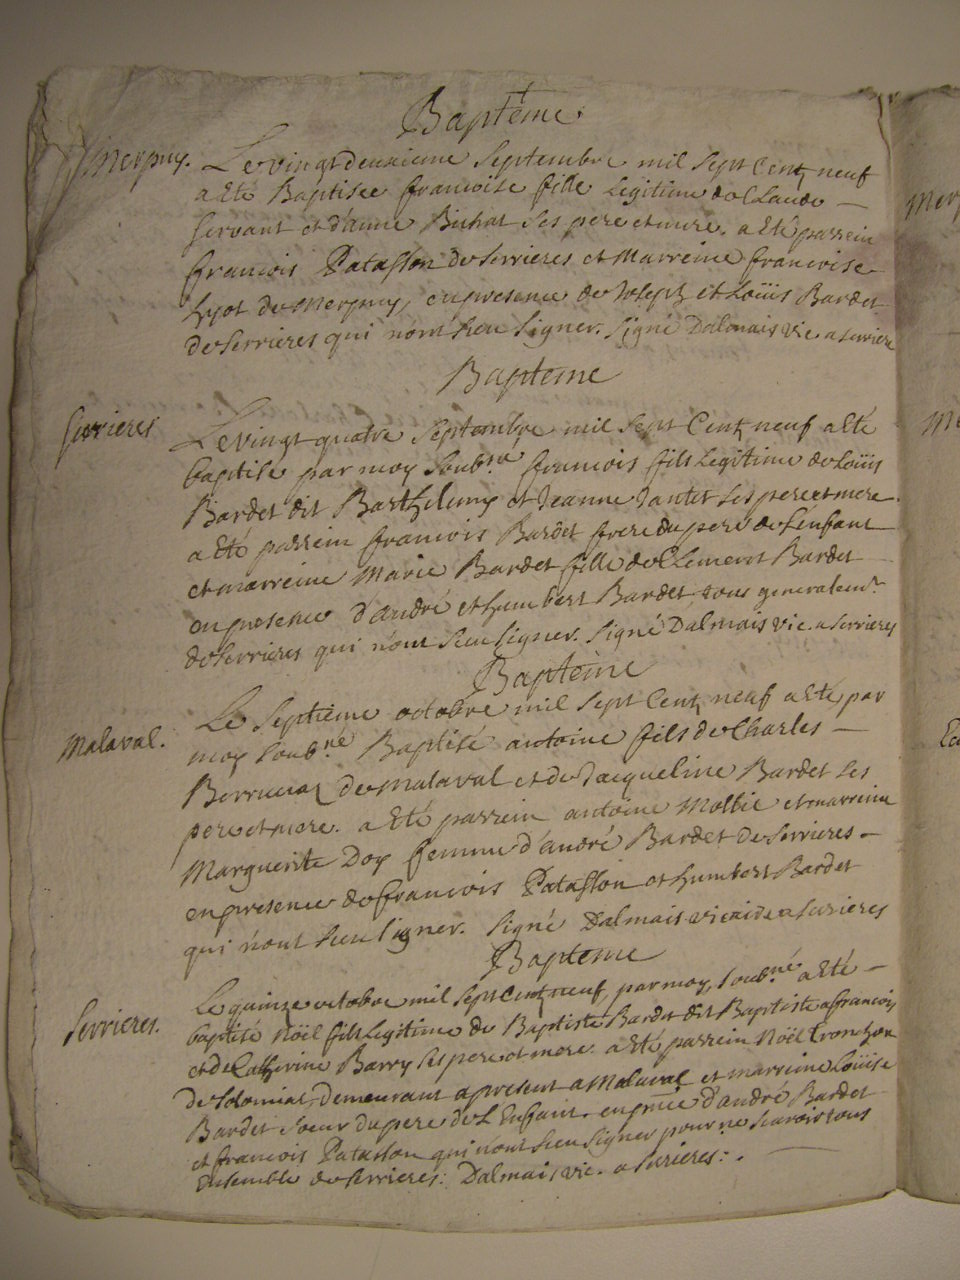 Bapteme
Merpuy. Le vingt deuxieme Septembre mil Sept Cent neuf
a Eté Baptisee francoise fille Legitime de Claude
Servant et d'anne Bichat Ses pere et mere. a Eté parrein
francois Patasson de Serrieres et Marreine francoise
Lyot de Merpuy, en presence de Joseph et Loüis Bardet
de Serrieres qui n'ont Sceu Signer. Signé Dalmais vic. a Serriere
Bapteme
Serrieres Le vingt quatre Septembre mil Sept Cent neuf a Eté
baptise par moy Soub.né francois fils Legitime de Loüis
Bardet dit Barthelemy et Jeanne Jantet Ses pere et mere.
a Eté parrein francois Bardet frere du pere de L'enfant
et marreine Marie Bardet fille de Clement Bardet
en presence d'andré et humbert Bardet, tous generalem.t
de Serrieres qui n'ont Sceu Signer. Signé Dalmais vic. a Serrieres
Bapteme
Le Septieme octobre mil Sept Cent neuf a Eté par
Malaval. moy Soub.né Baptisé antoine fils de Charles
de Malaval et de Jacqueline Bardet Ses
pere et mere. a Eté parrein antoine Mollie et marreine
Marguerite Doy femme d'andré Bardet de Serrieres
en presence de francois Patasson et humbert Bardet
qui n'ont Sceu Signer. Signé Dalmais vicaire a Surieres
Bapteme
Le quinze octobre mil Sept Cent neuf par moy Soub.né a Eté
Serrieres. baptisé Noël fils Legitime de Baptiste Bardet dit Baptiste a francois
et de Catherine Barry Ses pere et mere. a Eté parrein Noël Tronchon
de Solomiat, demeurant a present a Malaval et marreine Loüise
Bardet Soeur du pere de L'Enfant. en pnce d'andré Bardet
et francois Patasson qui n'ont Sceu Signer pour ne Scavoir tous
Ensemble de Serrieres: Dalmais vic. a Surieres:.